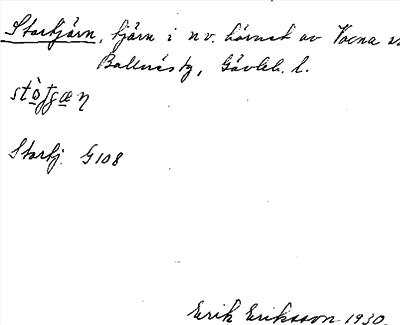 Stortjärn, tjärn i n v. hörnet av Voxna sn
Bollnäs tg, Gävleb. l.
Stortj. G 108
Erik Eriksson 1930.